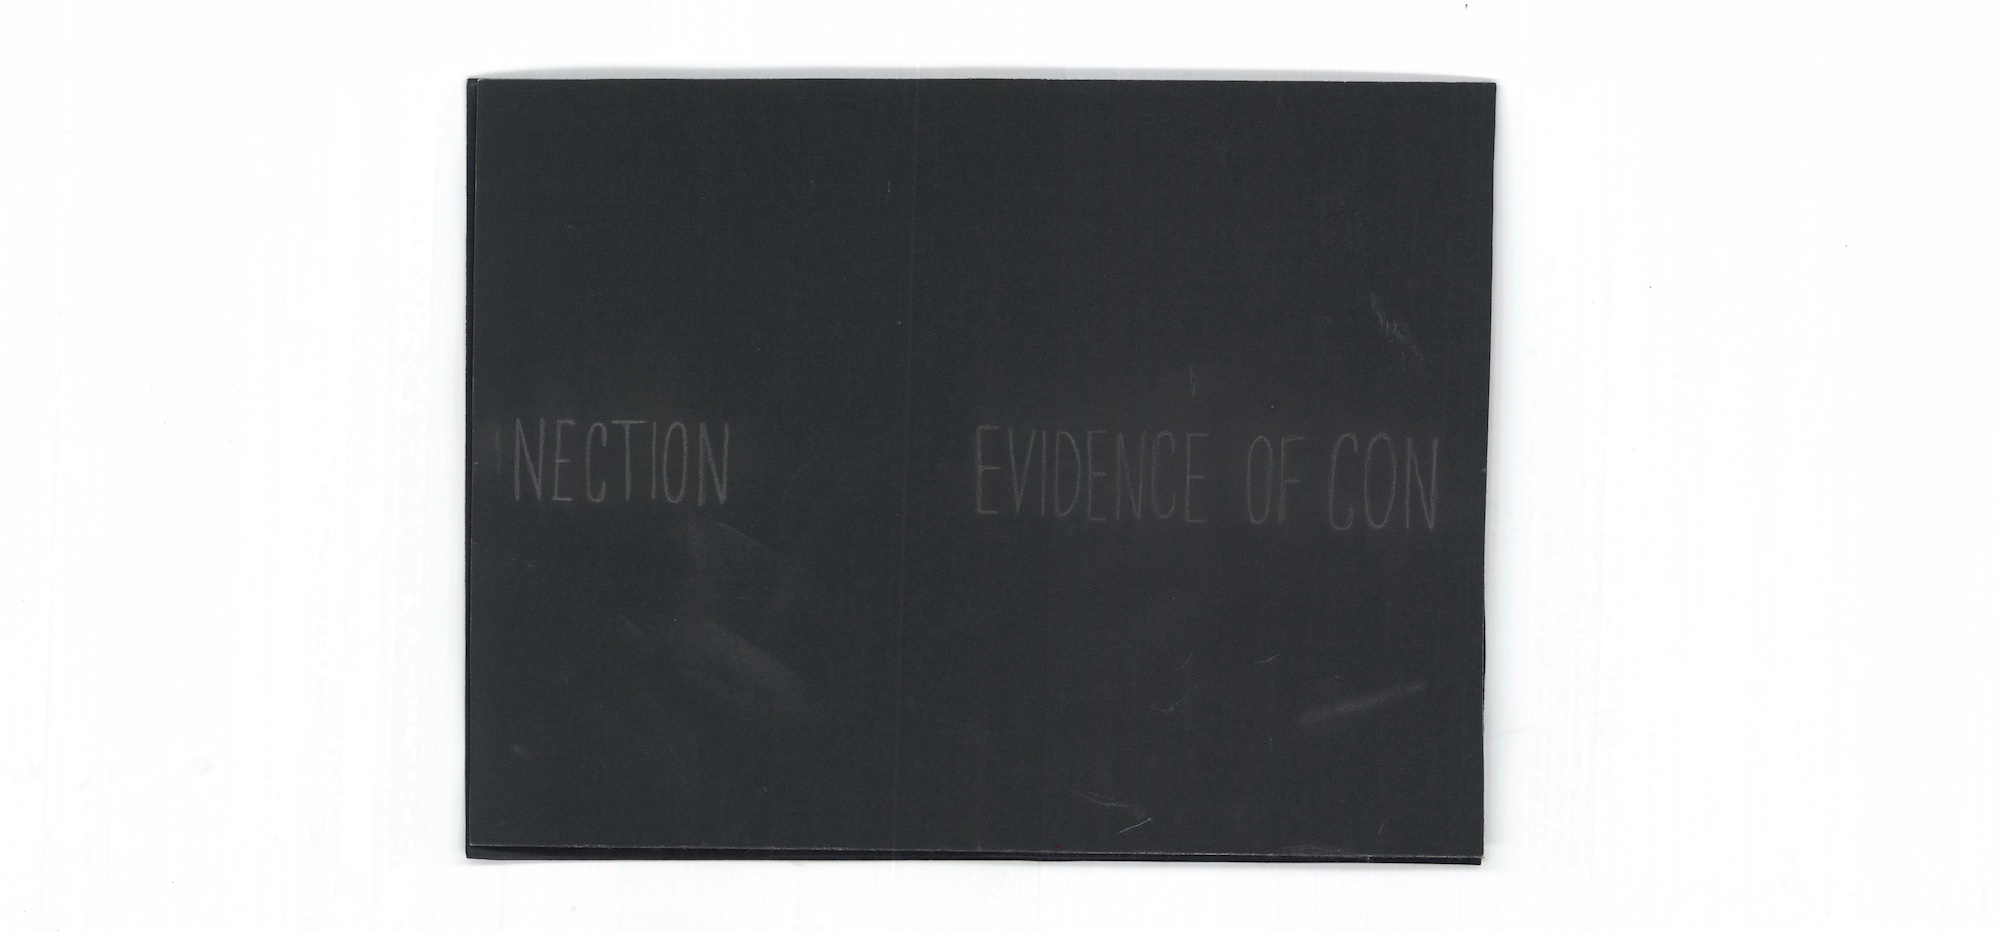 NECTION EVIDENCE OF CON